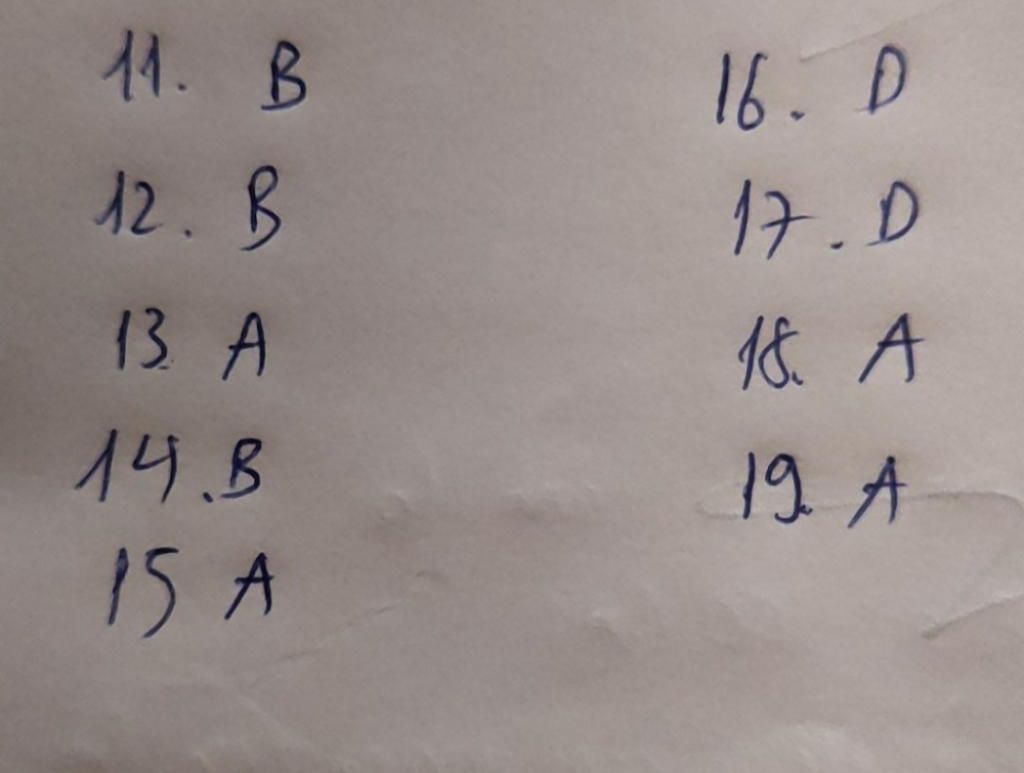 11. B
12. B
13. A
14. B
15 A
16. D
17. D
18. A
19. A